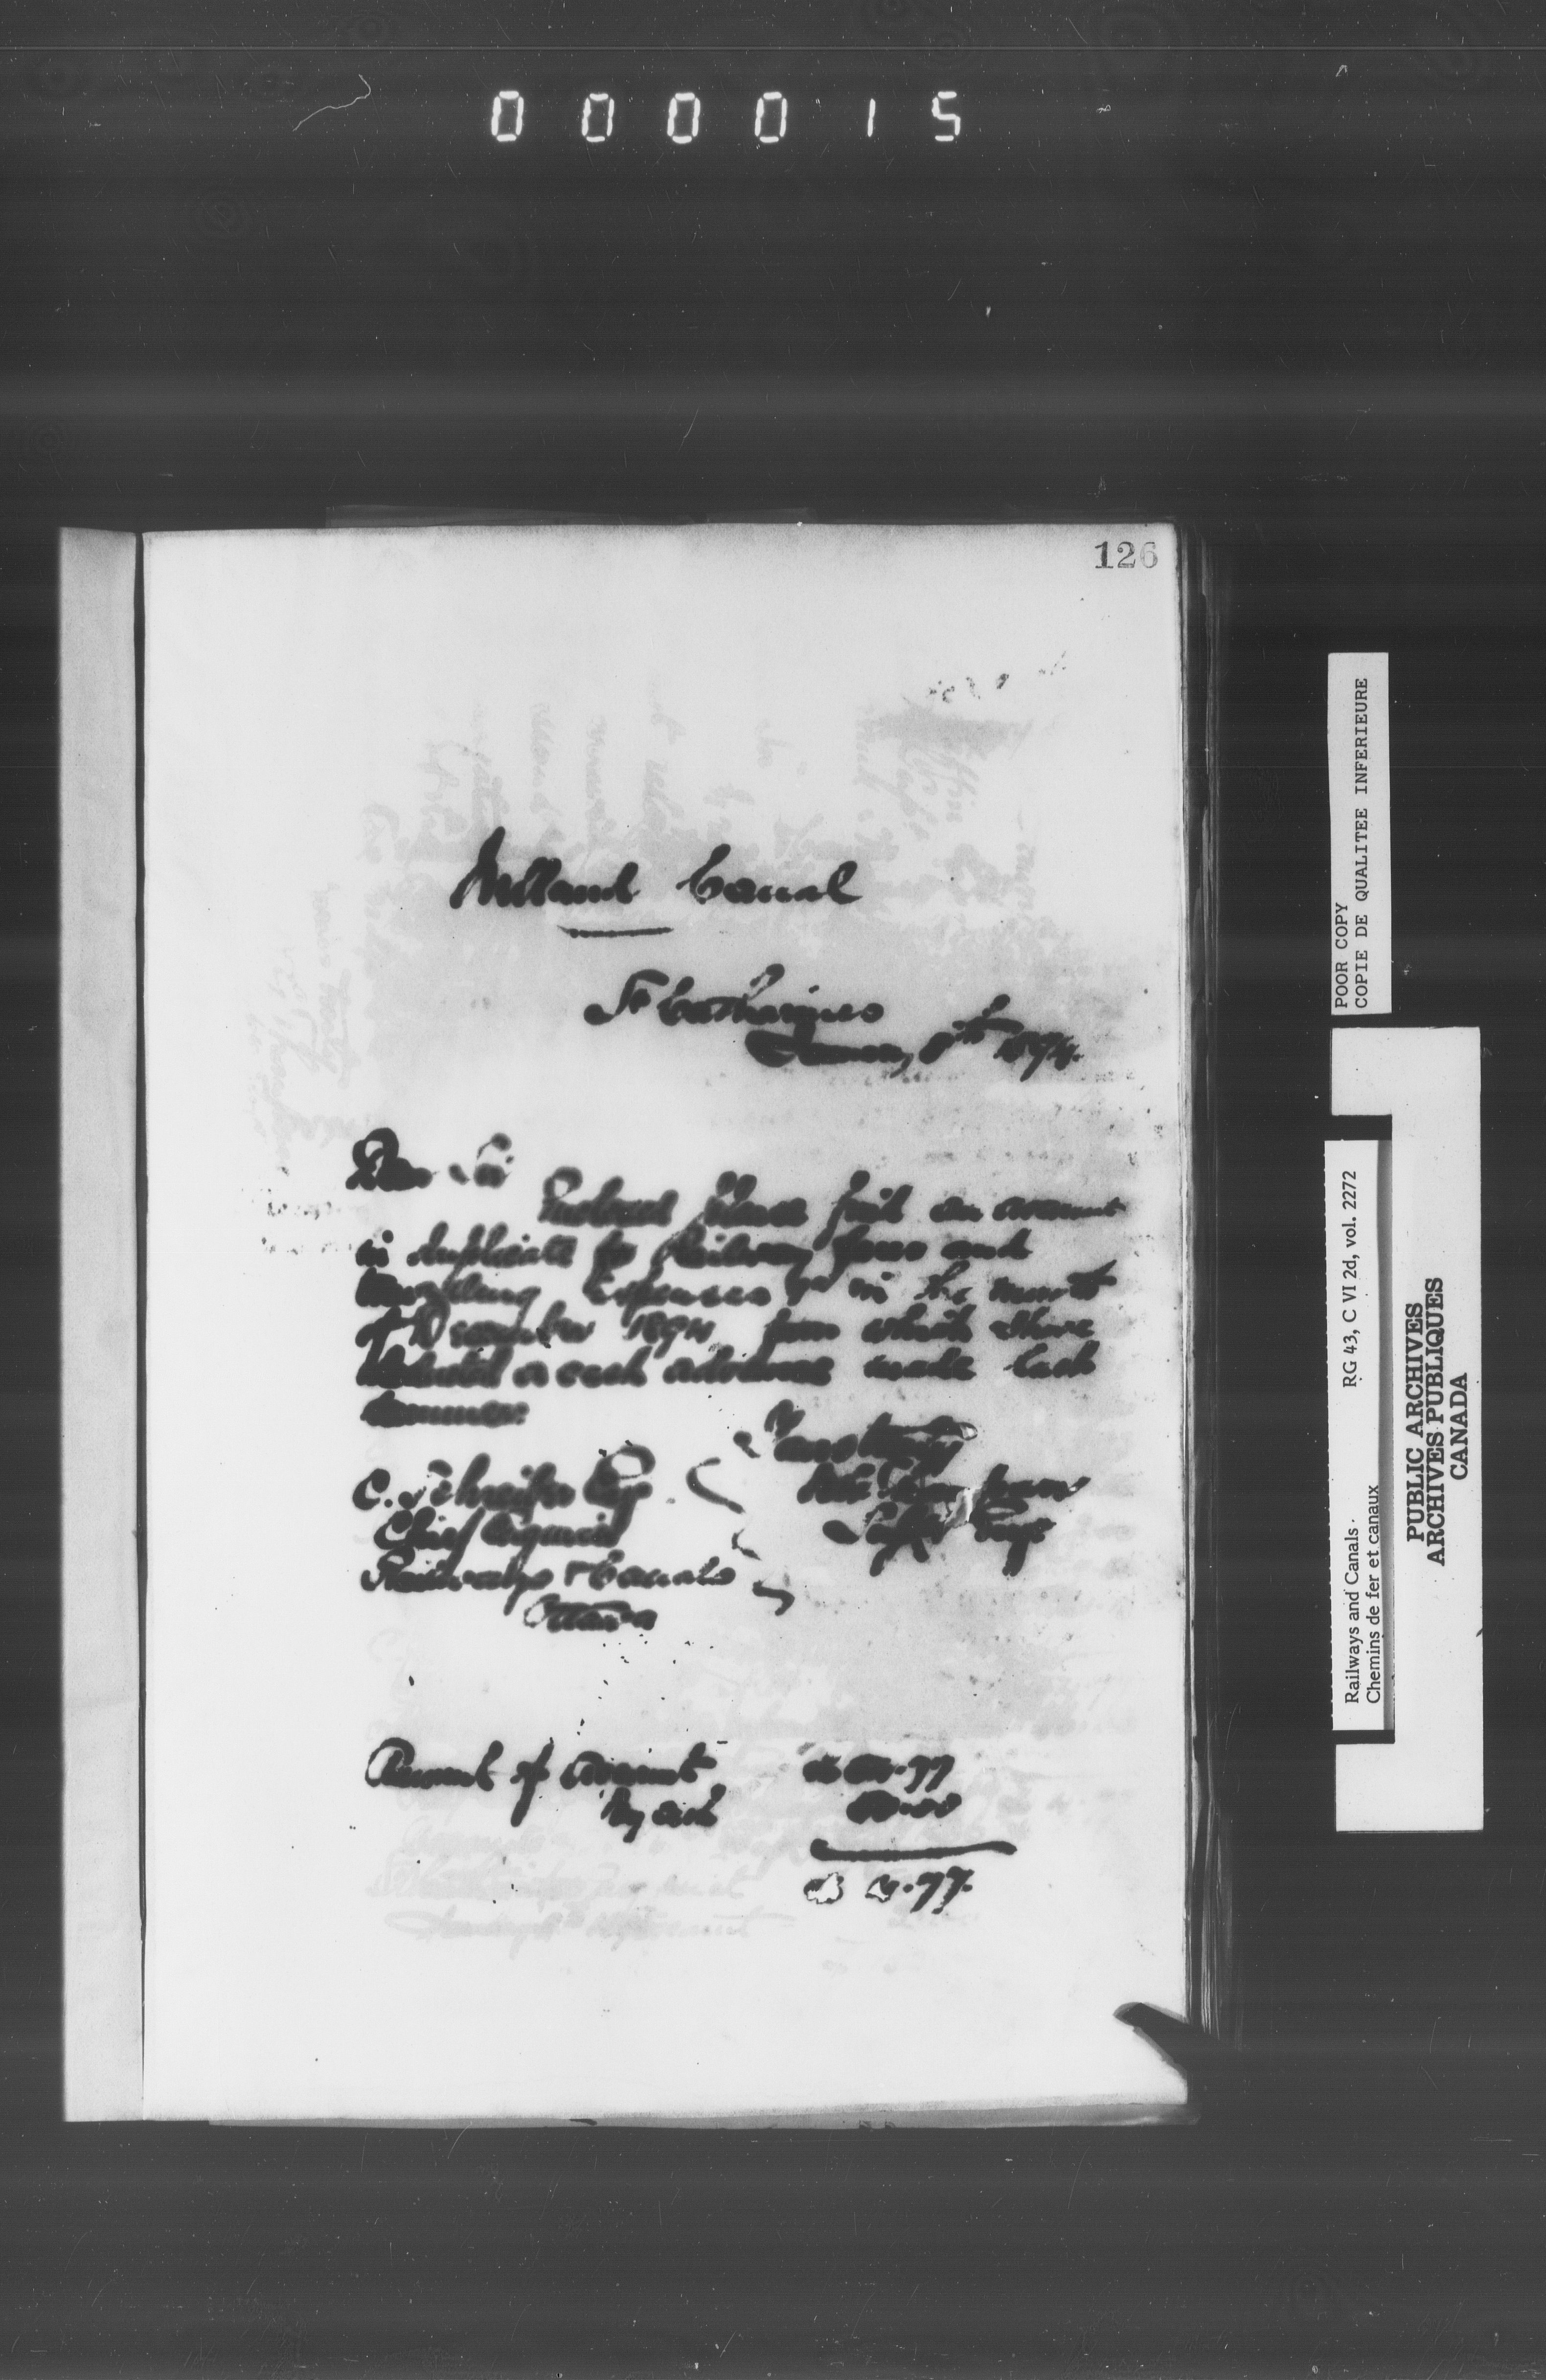 000015
126
Welland Canal
St Catharines
8th
Dear Sir
Enclosed please find an account
in duplicate for Railway fares and
travelling Expenses in the month
of December 189 from which I have
deducted a cash advance made last
summer.
Yours truly
C. Schreiber Esq
Chief Engineer
Railways & Canals
Ottawa
Supt Eng
Amount of Account .77
By cash .00
.77
POOR COPY
COPIE DE QUALITEE INFERIEURE
Railways and Canals RG 43, C VI 2d, vol. 2272
Chemins de fer et canaux
PUBLIC ARCHIVES
ARCHIVES PUBLIQUES
CANADA